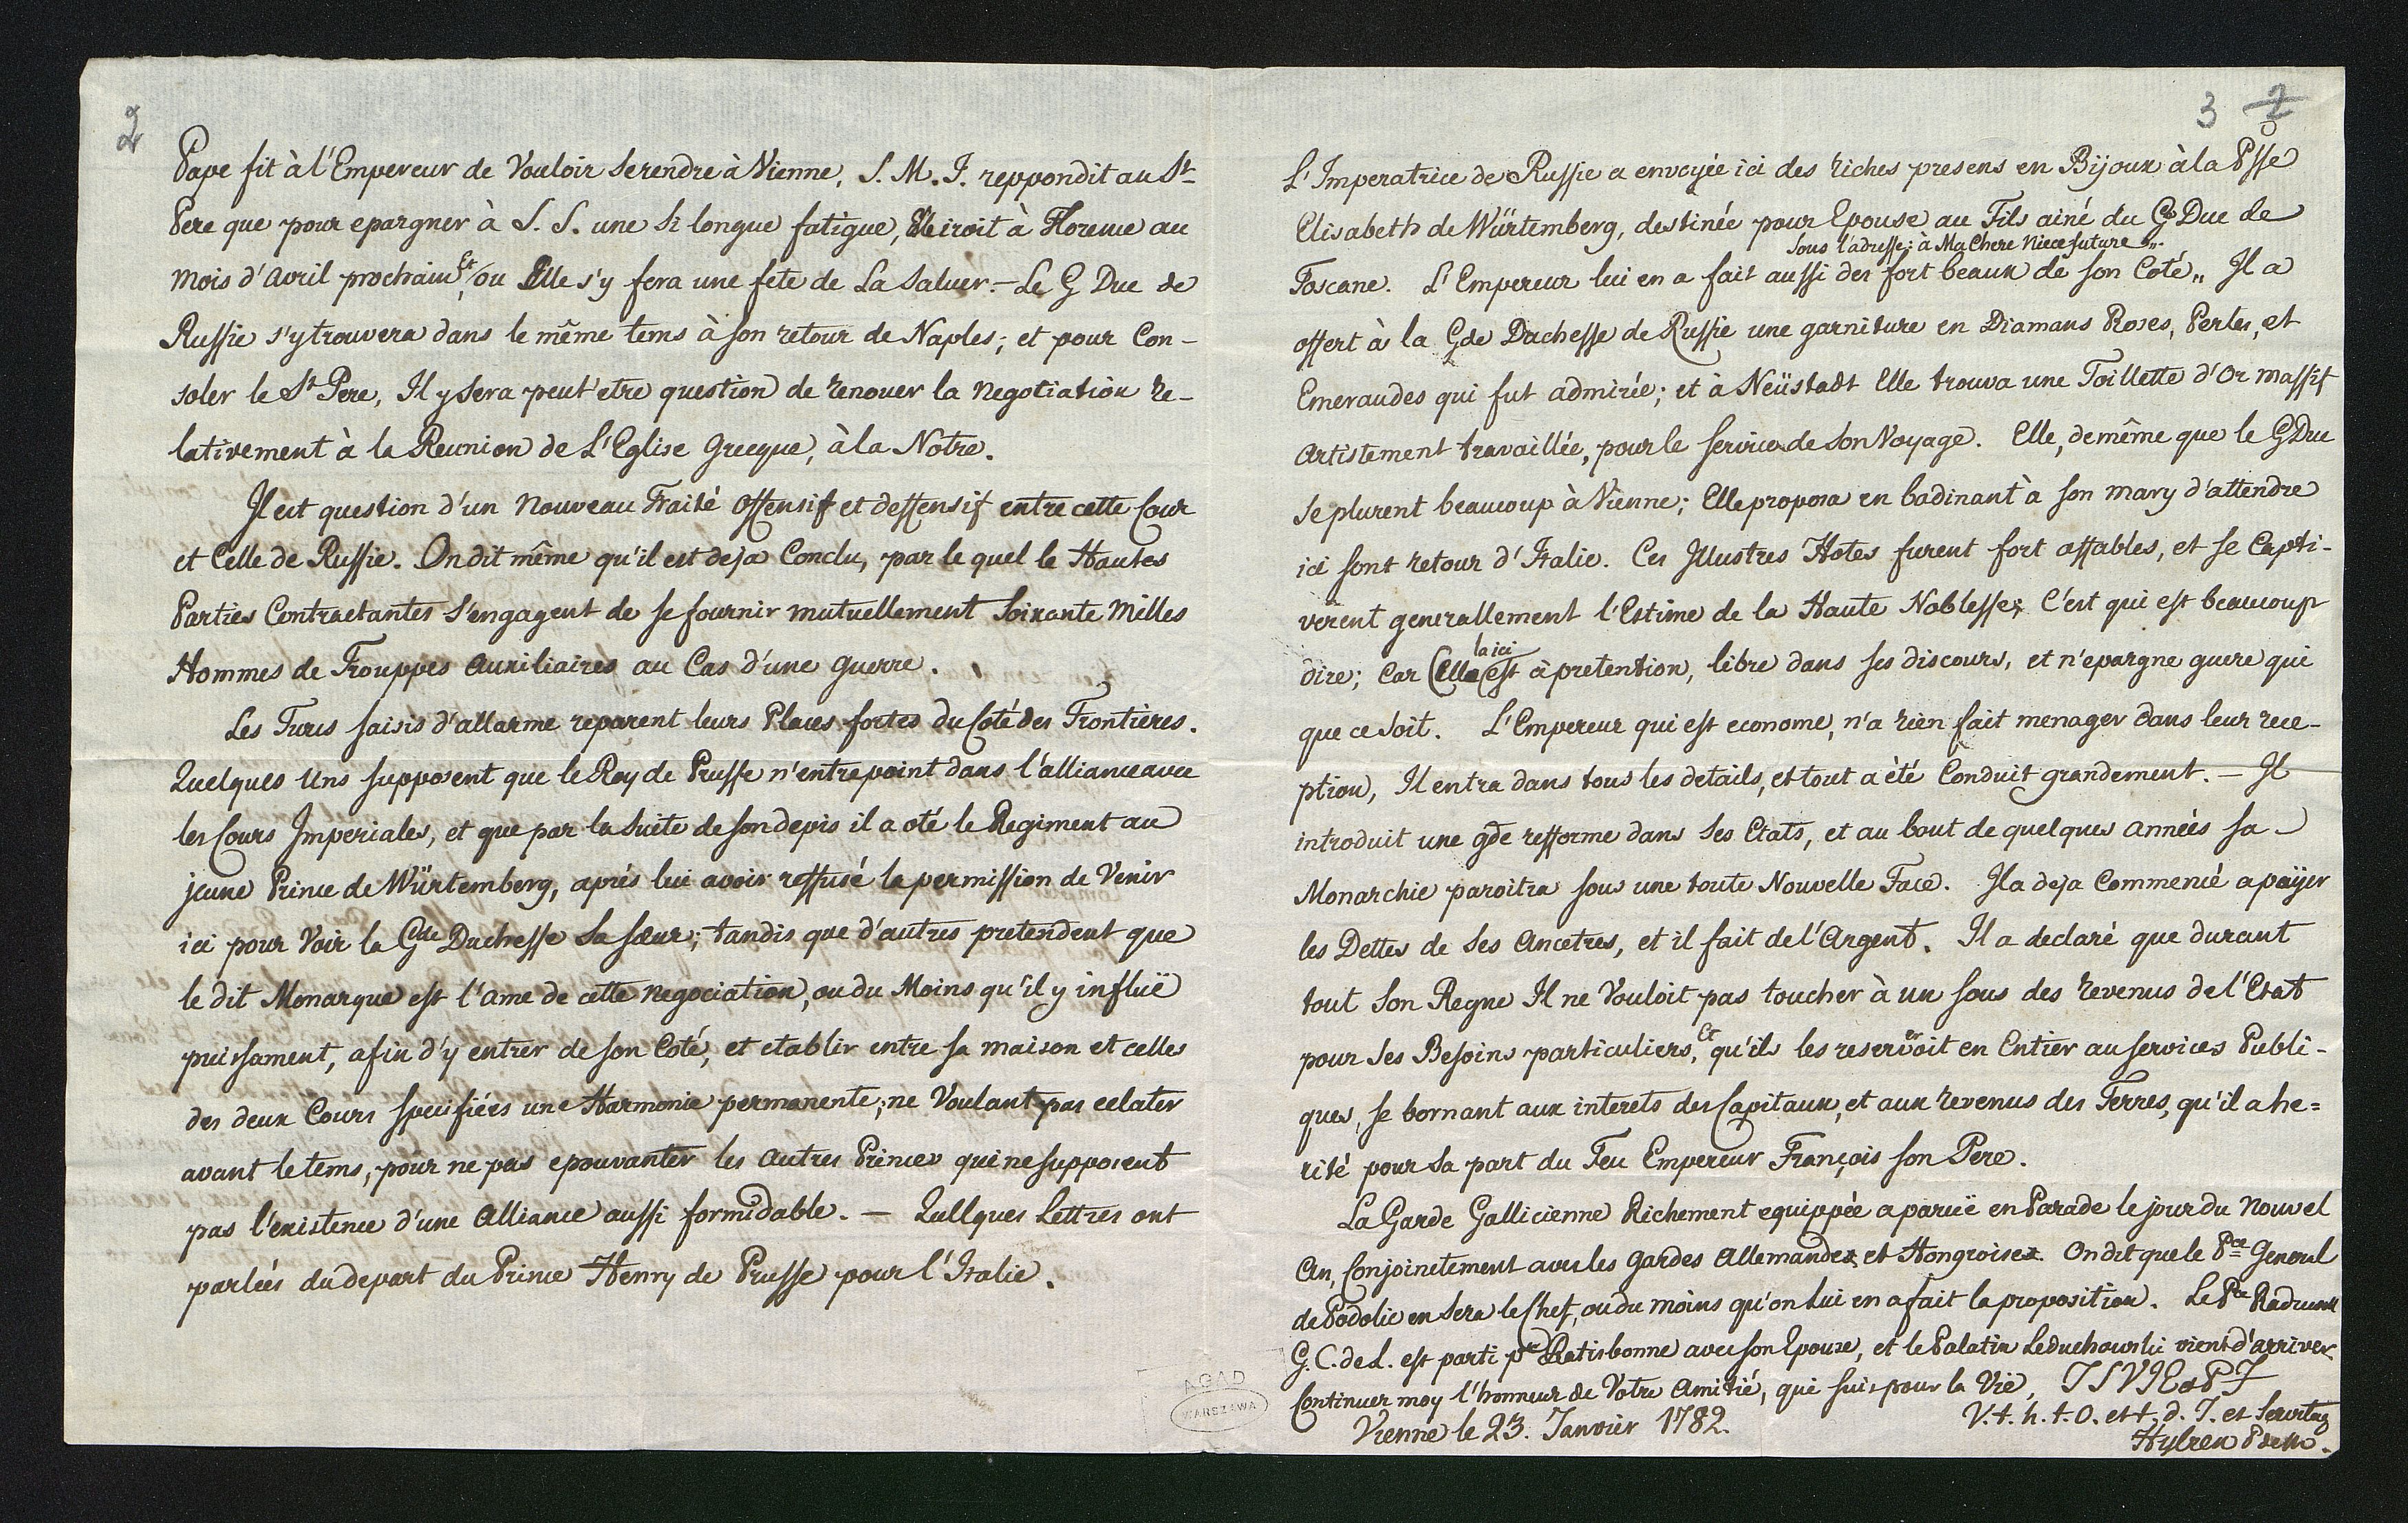 2
Pape fit à l'Empereur de Vouloir se rendre à Vienne, S. M. I. reppondit au St
Pere que pour epargner à S. S. une si longue fatigue, Elle iroit à Florence au
mois d'Avril prochain, et ou Elle s'y fera une fete de La Saluer. - Le G Duc de
Russie s'y trouvera dans le même tems à son retour de Naples; et pour Con-
soler le St Pere, Il y sera peut'etre question de renouer la Negotiation re-
lativement à la Reunion de L'Eglise Grecque, à la Notre.
Il est question d'un Nouveau Traité Offensif et deffensif entre cette Cour
et Celle de Russie. On dit même qu'il est deja Conclu, par le quel le Hautes
Parties Contractantes s'engagent de se fournir mutuellement Soixante Milles
Hommes de Trouppes Auxiliaires au Cas d'une guerre.
Les Turcs saisis d'allarme reparent leurs Places fortes du Coté des Frontières.
Quelques Uns supposent que le Roy de Prusse n'entre point dans l'alliance avec
les Cours Imperiales, et que par la Suite de son depis il a oté le Regiment au
jeune Prince de Würtemberg, aprés lui avoir reffusé la permission de Venir
ici pour Voir la Gde Duchesse Sa sœur; tandis que d'autres pretendent que
le dit Monarque est l'ame de cette negociation, ou du Moins qu'il y influë
puissament, afin d'y entrer de son Coté, et etablir entre sa maison et celles
des deux Cours specifiées une Harmonie permanente, ne Voulant pas eclater
avant le tems, pour ne pas epouvanter les Autres Princes qui ne supposent
pas l'existence d'une Alliance aussi formidable. - Qullques Lettres ont
parlées du depart du Prince Henry de Prusse pour l'Italie.
AGAD
WARSZAWA
3 2
L'Imperatrice de Russie a envoyée ici des riches presens en Bijoux à la Psse
Elisabeth de Würtemberg, destinée pour Epouse au Fils ainé du G Duc de
Sous l'adresse: à Ma Chere Niece future
Toscane. L'Empereur lui en a fait aussi des fort beaux de son Coté,, Il a
offert à la Gde Duchesse de Russie une garniture en Diamans Roses, Perles, et
Emeraudes qui fut admirée; et à Neüstadt Elle trouva une Toillette d'Or massif
Artistement travaillée, pour le service de Son Voyage. Elle, de même que le G Duc
se plurent beaucoup à Vienne; Elle proposa en badinant à son mary d'attendre
ici sont retour d'Italie. Ces Illustres Hotes furent fort affables, et se Capti-
verent generallement l'Estime de la Haute Noblesse; C'est qui est beaucoup
la ici
dire; Car Celle est à pretention, libre dans ses discours, et n'epargne guere qui
que ce soit. L'Empereur qui est econome, n'a rien fait menager dans leur rece-
ption, Il entra dans tous les details, et tout a été Conduit grandement. - Il
introduit une gde refforme dans Ses Etats, et au bout de quelques Années sa
Monarchie paroitra sous une toute Nouvelle Face. Il a deja Commencé a paÿer
les Dettes de Ses Ancetres, et il fait de l'Argent. Il a declaré que durant
tout Son Regne Il ne Vouloit pas toucher à un sous des revenus de l'Etat
pour Ses Besoins particuliers, et qu'ils les reservoit en Entier au services Publi-
ques, se bornant aux interets des Capitaux, et aux revenus des Terres, qu'il a he=
rité pour Sa part du Feu Empereur François son Pere.
La Garde Gallicienne Richement equippée a paruë en Parade le jour du Nouvel
An, Conjoinctement avec les Gardes Allemandes, et Hongroises. On dit que le Pce General
de Podolie en Sera le Chef, ou du moins qu'on Lui en a fait la proposition. Le Pce Radziwill
G. C. de L. est parti pr Ratisbonne avec son Epouse, et le Palatin Leduchowski vient d'arriver.
Continuer moy l'honneur de Votre Amitié, qui suis pour la Vie,
V. t. h. t. O. et t. d. I. et Serviteur
Vienne le 23. Janvier 1782.
Hylzen